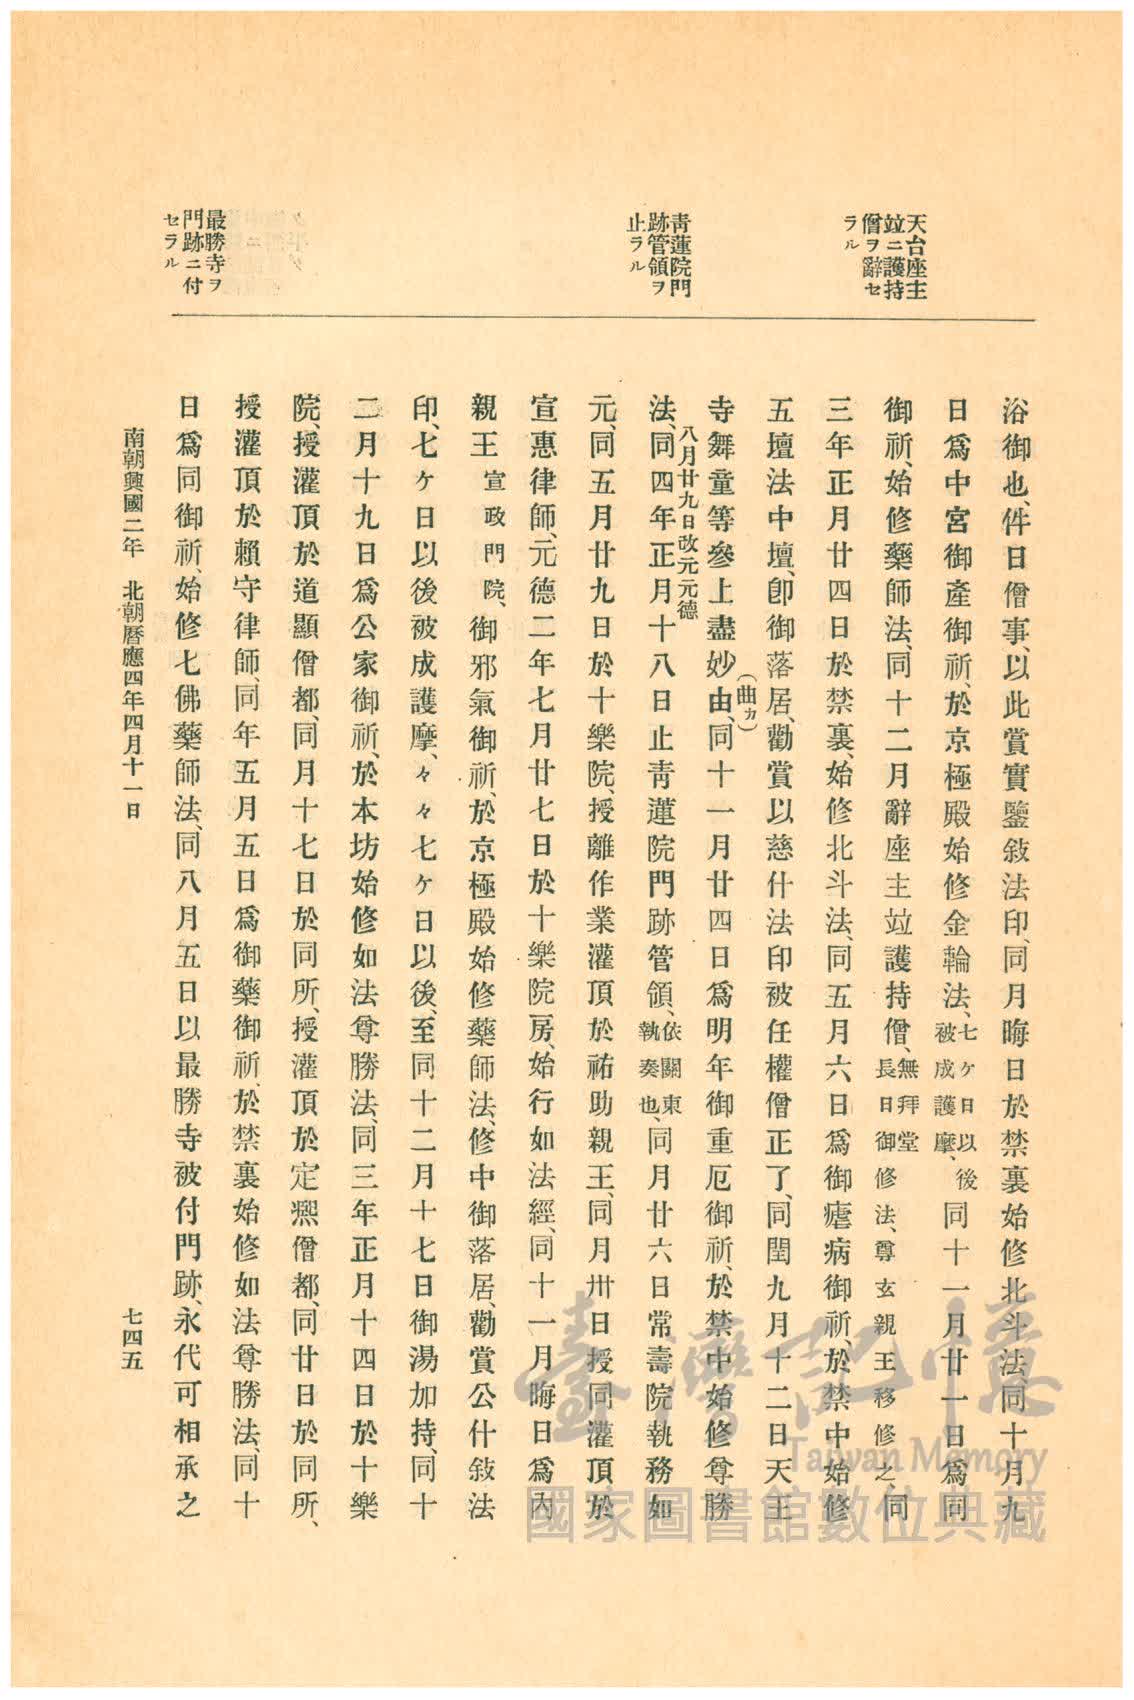 天台座主
竝ニ護持
僧ヲ辭セ
ラル
靑蓮院門
跡管領ヲ
止ラル
最勝寺ヲ
門跡ニ付
セラル
浴御也、件日僧事、以此賞實鑒敍法印、同月晦日於禁裏始修北斗法、同十月九
日爲中宮御產御祈、於京極殿始修金輪法、七ケ日以後被成護摩、同十一月廿一日爲同
御祈、始修藥師法、同十二月辭座主竝護持僧、無拜堂長日御修法、尊玄親王移修之、同
三年正月廿四日於禁裏、始修北斗法、同五月六日爲御瘧病御祈、於禁中始修
五壇法中壇、卽御落居、勸賞以慈什法印被任權僧正了、同閏九月十二日天王
寺舞童等參上盡妙由、同十一月廿四日爲明年御重厄御祈、於禁中始修尊勝
(曲カ)
八月廿九日改元元德
法、同四年正月十八日止靑蓮院門跡管領、依關東執奏也、同月廿六日常壽院執務如
元、同五月廿九日於十樂院、授離作業灌頂於祐助親王、同月卅日授同灌頂於
宣惠律師、元德二年七月廿七日於十樂院房、始行如法經、同十一月晦日爲內
親王宣政門院、御邪氣御祈、於京極殿始修藥師法、修中御落居、勸賞公什敍法
印、七ケ日以後被成護摩、々々七ケ日以後、至同十二月十七日御湯加持、同十
二月十九日爲公家御祈、於本坊始修如法尊勝法、同三年正月十四日於十樂
院、授灌頂於道顯僧都、同月十七日於同所、授灌頂於定凞僧都、同廿日於同所、
授灌頂於賴守律師、同年五月五日爲御藥御祈、於禁裏始修如法尊勝法、同十
日爲同御祈、始修七佛藥師法、同八月五日以最勝寺被付門跡、永代可相承之
南朝興國二年　北朝曆應四年四月十一日
七四五
臺灣記憶
Taiwan Memory
國家圖書館數位典藏